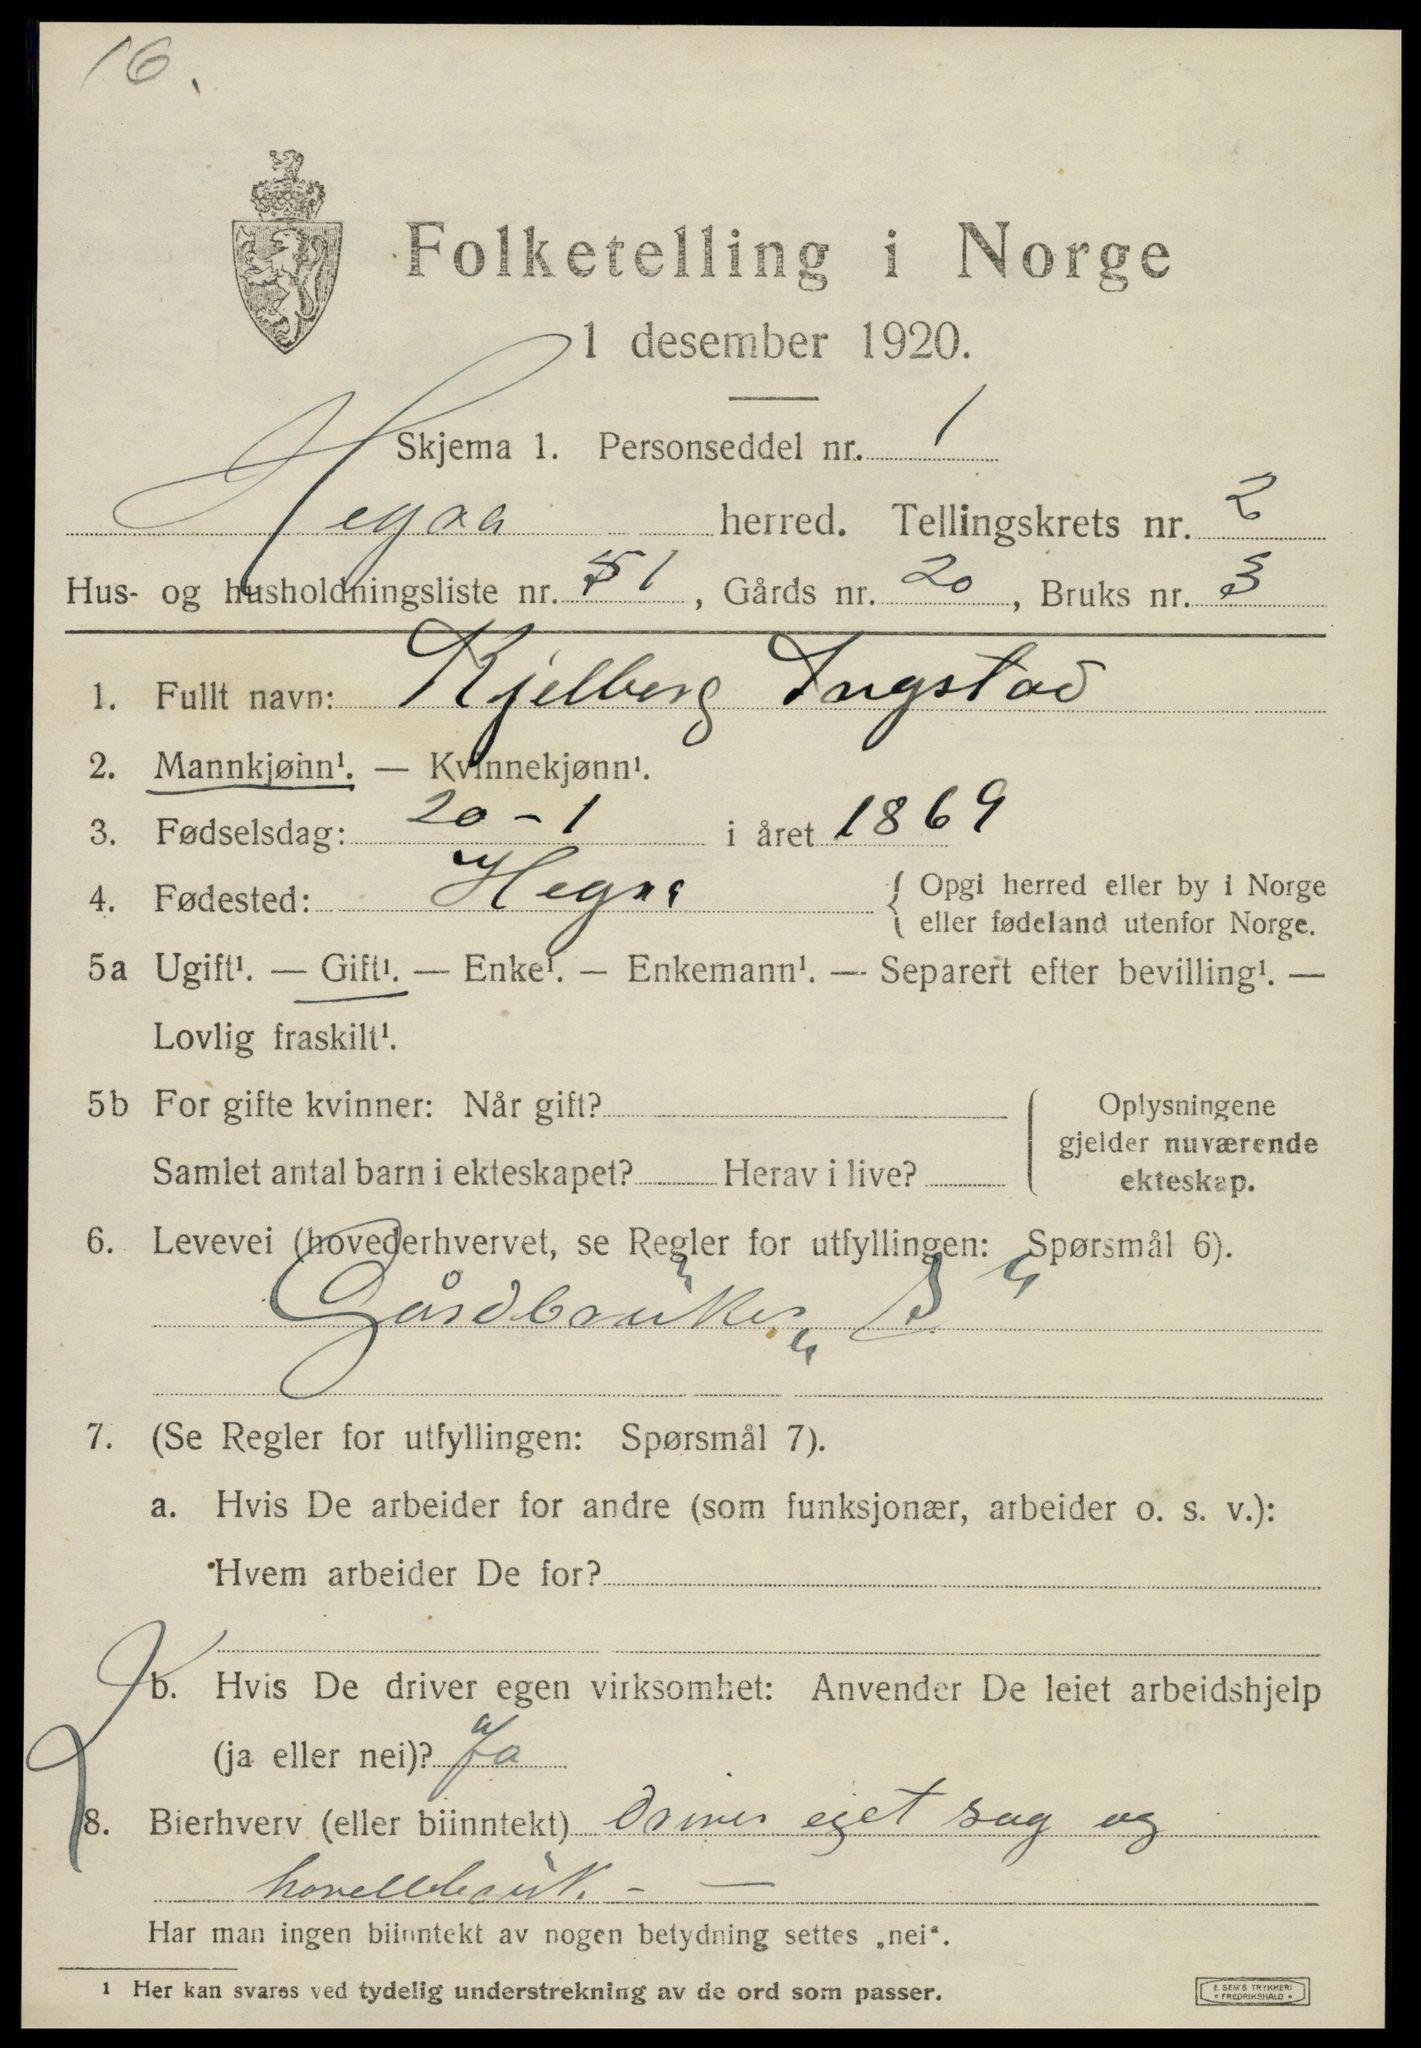 16.
Folketelling i Norge
1 desember 1920.
Skjema 1. Personseddel nr. 1
Hegra herred. Tellingskrets nr. 2
Hus- og husholdningsliste nr. 51, Gårds nr. 20, Bruks nr. 3
1. Fullt navn: Kjelberg Ingstad
2. Mannkjønn¹. — Kvinnekjønn¹.
3. Fødselsdag: 20-1 i året 1869
4. Fødested: Hegra { Opgi herred eller by i Norge
eller fødeland utenfor Norge.
5a Ugift¹. — Gift¹. — Enke¹. — Enkemann¹. — Separert efter bevilling¹. —
Lovlig fraskilt¹.
5b For gifte kvinner: Når gift?
Samlet antal barn i ekteskapet? Herav i live?
Oplysningene
gjelder nuværende
ekteskap.
6. Levevei (hovederhvervet, se Regler for utfyllingen: Spørsmål 6).
Gårdbruker „ S “
7. (Se Regler for utfyllingen: Spørsmål 7).
a. Hvis De arbeider for andre (som funksjonær, arbeider o. s. v.):
Hvem arbeider De for?
b. Hvis De driver egen virksomhet: Anvender De leiet arbeidshjelp
(ja eller nei)? Ja
8. Bierhverv (eller biinntekt) Driver eget sag og
hovellbruk. - —
Har man ingen biinntekt av nogen betydning settes „nei“.
1 Her kan svares ved tydelig understrekning av de ord som passer.
E. SEM'S TRYKKERI
* FREDRIKSHALD *